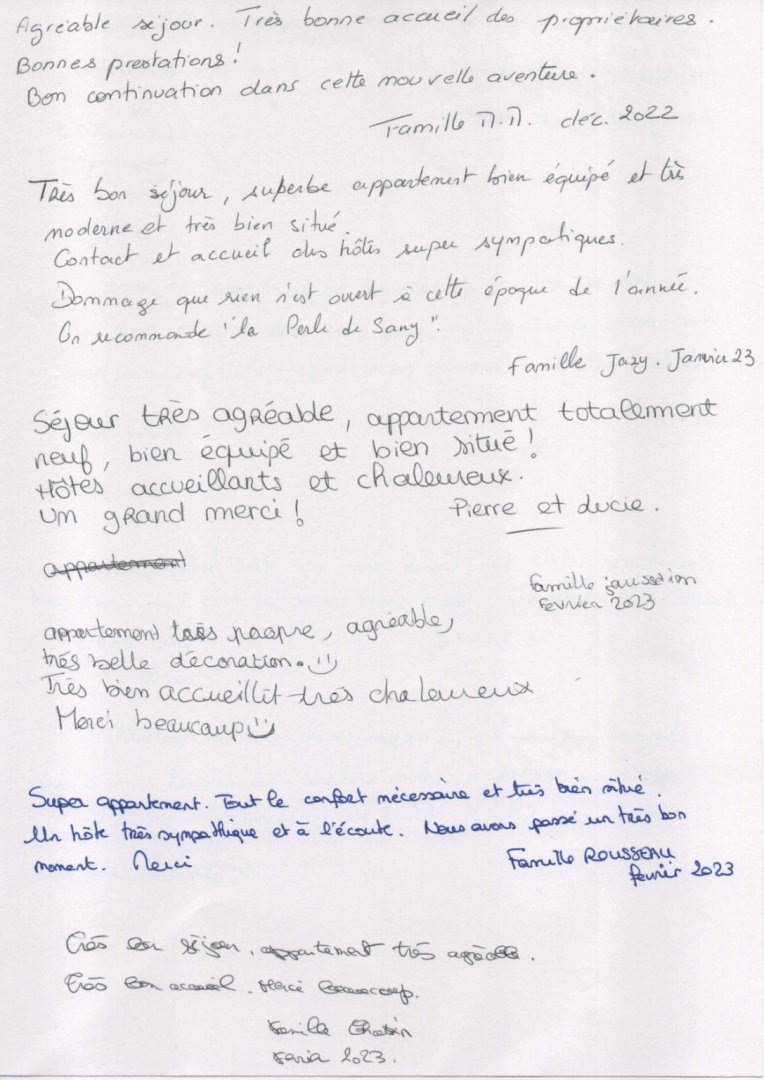 Agréable séjour. Très bonne accueil des propriétaires.
Bonnes prestations!
Bon continuation dans cette nouvelle aventure.
Famille déc. 2022
Très bon séjour, superbe appartement bien équipé et très
moderne et très bien situé.
Contact et accueil des hôtes super sympatiques.
Dommage que rien n'est ouvert à cette époque de l'année.
On recommande "la Perle de Sany".
Famille Jazy. Janvier 23
Séjour très agréable, appartement totalement
neuf, bien équipé et bien situé!
Hôtes accueillants et chaleureux.
Un grand merci!
Pierre et Lucie.
appartement
Famille
Février 2023
appartement très propre, agréable,
très belle décoration.
Très bien accueillit très chaleureux
Merci beaucoup
Super appartement. Tout le confort nécessaire et très bien situé.
Un hôte très sympathique et à l'écoute. Nous avons passé un très bon
moment. Merci
Famille ROUSSEAU
février 2023
Très bon séjour, appartement très agréable.
Très bon accueil. Merci beaucoup.
2023.